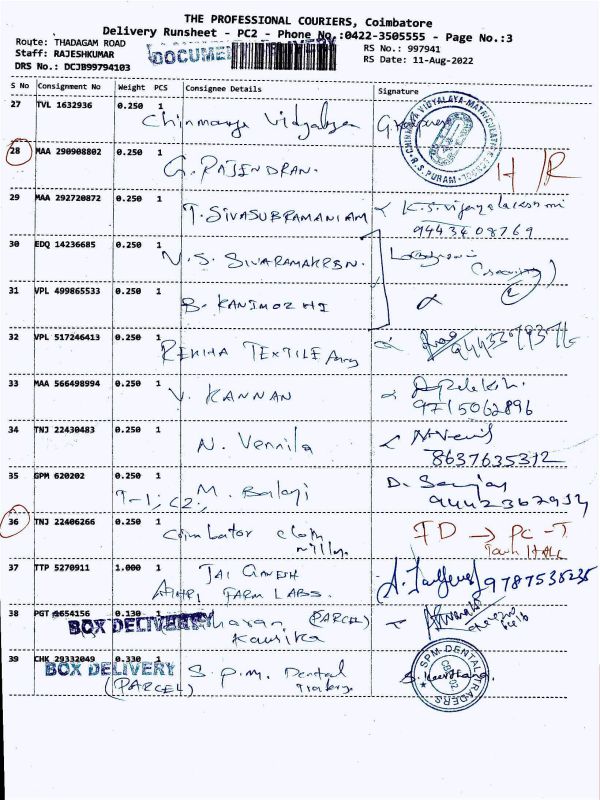 THE PROFESSIONAL COURIERS, Coimbatore
Delivery Runsheet - PC2 - Phone No.:0422-3505555 - Page No.:3
Route: THADAGAM ROAD
RS No.: 997941
Staff: RAJESHKUMAR
DOCUMENT DELIVERY
RS Date: 11-Aug-2022
DRS No.: DCJB99794103
S No Consignment No Weight PCS Consignee Details Signature
27 TVL 1632936 0.250 1
Chinmaya Vidyalaya
CHINMAYA VIDYALAYA MATRICULATION
R.S. PURAM
28 MAA 290908802 0.250 1
G. RAJENDRAN. H/R
29 MAA 292720872 0.250 1
T. SIVASUBRAMANIAM K.S. Vijayalakshmi
9443408769
30 EDQ 14236685 0.250 1
V.S. SIVARAMAKRSN.
(security)
31 VPL 499865533 0.250 1
B. KANIMOZHI
32 VPL 517246413 0.250 1
REKHA TEXTILE
33 MAA 566498994 0.250 1
V. KANNAN
9715062896
34 TNJ 22430483 0.250 1
N. Vennila
8637635312
35 GPM 620202 0.250 1
M. Balaji D. Sanjay
36 TNJ 22406266 0.250 1
Coimbator cloth FD → PC-T
37 TTP 5270911 1.000 1
JAI GANESH
FARM LABS. 9787538235
38 PGT 1654156 0.130 1
BOX DELIVERY
(PARCEL)
Kausika
39 CHK 29332049 0.330 1
BOX DELIVERY
S.P.M. Dental
(PARCEL)
SPM DENTAL TRADERS
CBE-02